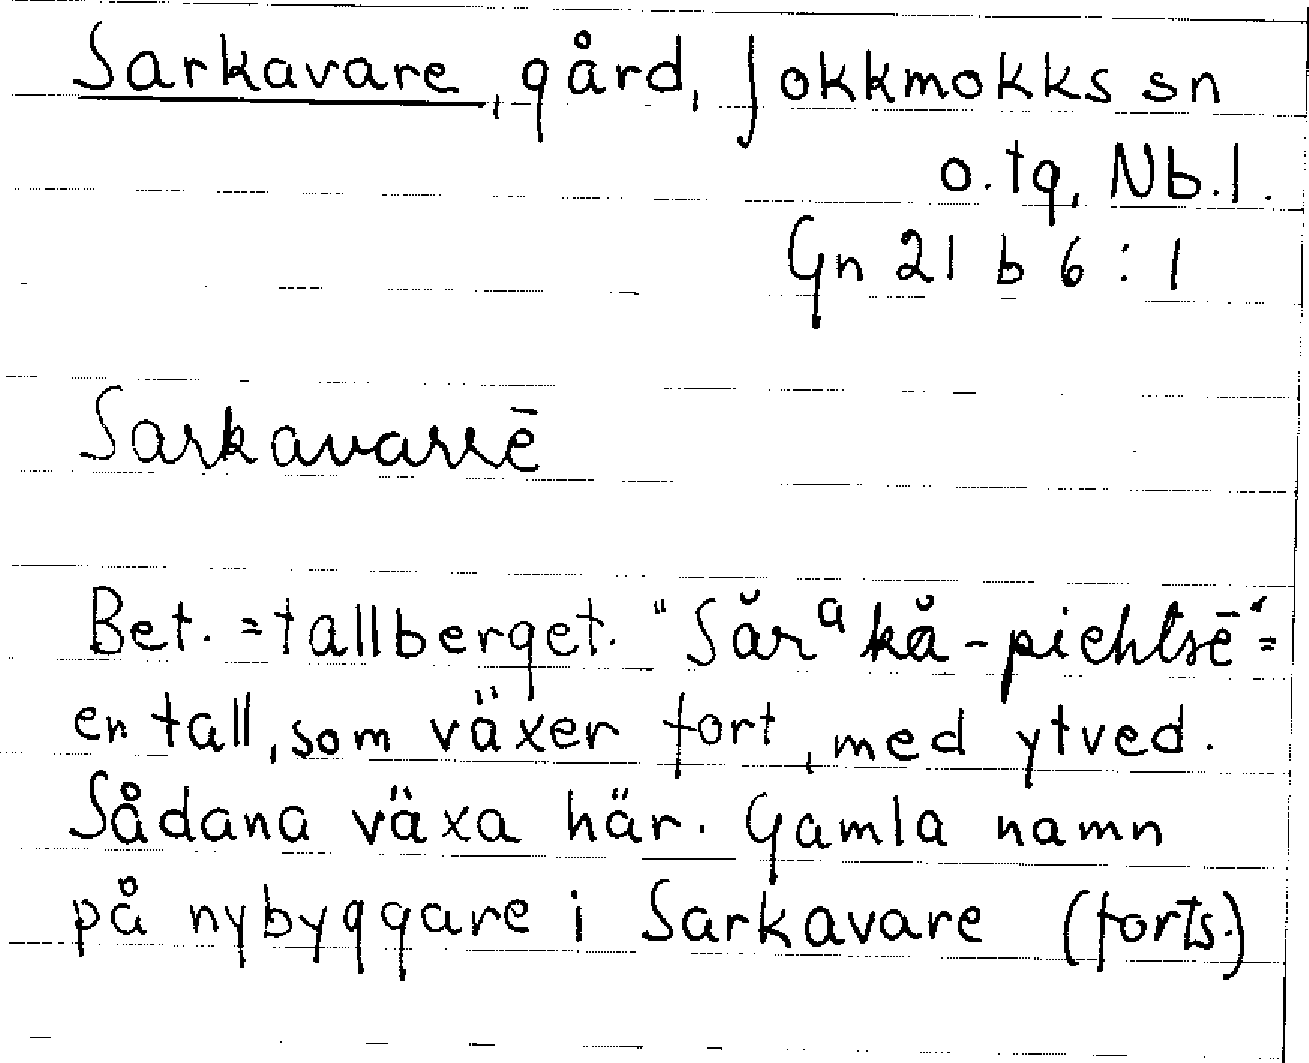 Sarkavare, gård, Jokkmokks sn
o. tg, Nb. l.
Gn 21 b 6 : 1
Sarkavarrē
Bet. = tallberget. "Săr ᵃkå̆-piehtsē" =
en tall, som växer fort, med ytved.
Sådana växa här. Gamla namn
på nybyggare i Sarkavare (forts.)